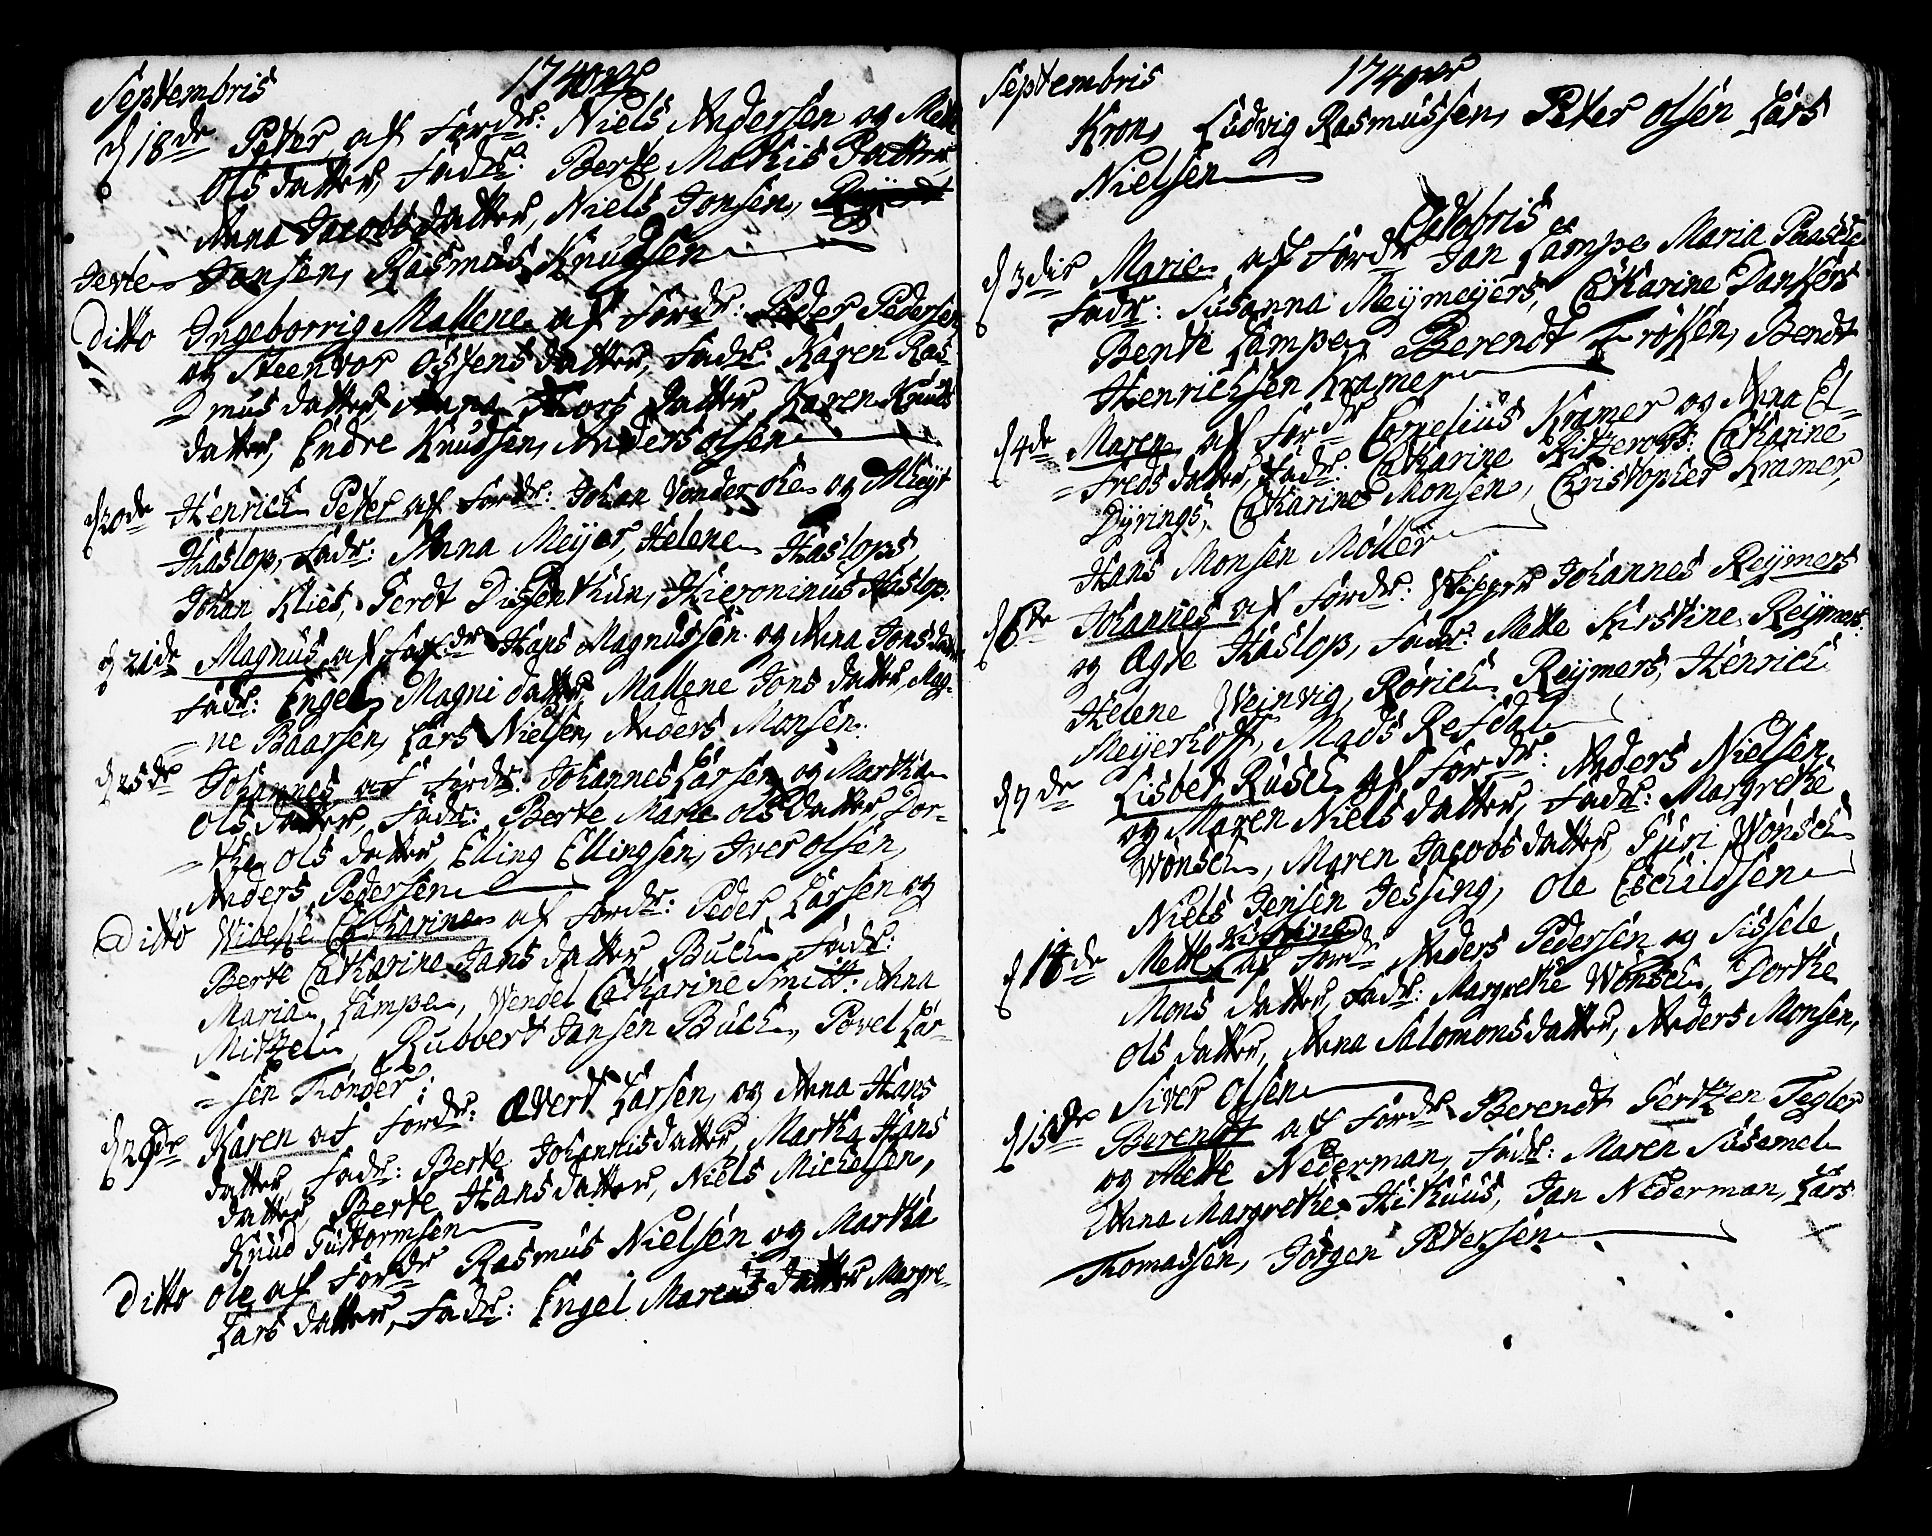 Septembris 1740
d 18de Peter af Fordr: Niels Andersen og Mette
Ols datter, Fadr: Berte Mathis Datter
Anna Jacobs datter, Niels Jonsen,
Jerte Jansen, Rasmus Knudsen
Ditto Ingeborrig Mallene af Fordr: Peder Pedersen
og Steenvor Ossens datter, Fadr: Karen Ras
mus datter, Anna Thors datter, Karen Knuds
datter, Endre Knudsen, Anders olsen
d 20de Henrich Peter af Fordr: Johan Vonder Ohe og Alleyt
Haslop, Fadr: Anna Meyer, Helene Haslops,
Johan Klies, Gerdt Dissenthun, Hieroninus Haslop.
d 21de Magnus af Fordr Hans Magnussen og Anna Jons datter
Fadr: Engel Magni datter, Mallene Jons datter, Mag-
= ne Baarsen, Lars Nielsen, Anders Monsen.
d 25de Johannes af Fordr: Johannes Larsen og Martha
Ols datter, Fadr: Berte Marie ols datter, Dor-
= the ols datter, Elling Ellingsen, Iver olsen,
Anders Pedersen
Ditto Wibeke Catharina af Fordr: Peder Larsen og
Berte Catharine Jans datter Buch, Fadr:
Maria Lampe, Wendel Catharine Smitt: Anna
Mitzel, Rubbert Jansen Buch, Povel Lar-
= sen Thonder:
d 29de Karen af Fordr: Evert Larsen, og Anna Hans
datter, Fadr: Berte Johannisdatter, Martha Hans
datter, Berte Hans datter, Niels Michelsen,
Knud Guttormsen
Ditto Ole af Fordr Rasmus Nielsen og Martha
Lars datter, Fadr: Engel Marcus datter Margre-
Septembris 1740
Kron, Ludvig Rasmussen, Peter olsen Lars
Nielsen
Octobris
d 3die Marie af Fordr Jan Lampe Maria Paasche
Fadr: Susanna Meymeyers, Catharine Dankers
Bente Lampe, Berendt Froken, Bendt
Henrichsen Kramer
d 4de Maren af Fordr Cornelius Kramer og Anna El-
= freds datter, Fadr: Catharine Kitzerows: Catharine
Dyrings, Catharine Monsen, Christopher Kramer,
Hans Monsen Moller
d 6te Johannes af Fordr: Skipper Johannes Reymers
og Agte Haslop, Fadr: Mette Kirstine Reymers:
Helene Weinvig, Rorich Reymers, Henrich
Meyerhoff, Mads Refdal
d 7de Lisbet Rusch af Fordr: Anders Nielsen
og Maren Niels datter, Fadr: Margrethe
Wonsch, Maren Jacobs datter, Guri Wonsch
Niels Jensen Jessing, Ole Eschildsen
d 14de Mette Kirstine af Fordr Anders Pedersen og Sissele
Mons datter, Fadr: Margrethe Wonsch, Dorthe
Ols datter, Anna Salomons datter, Anders Monsen,
Siver Olsen
d 15de Berendt af Fordr Berendt Gertzen Tegler
og Mette Nederman, Fadr: Maren Susamel
Anna Margrethe Hithuus, Jan Nederman, Lars
Thomassen, Jorgen Petersen